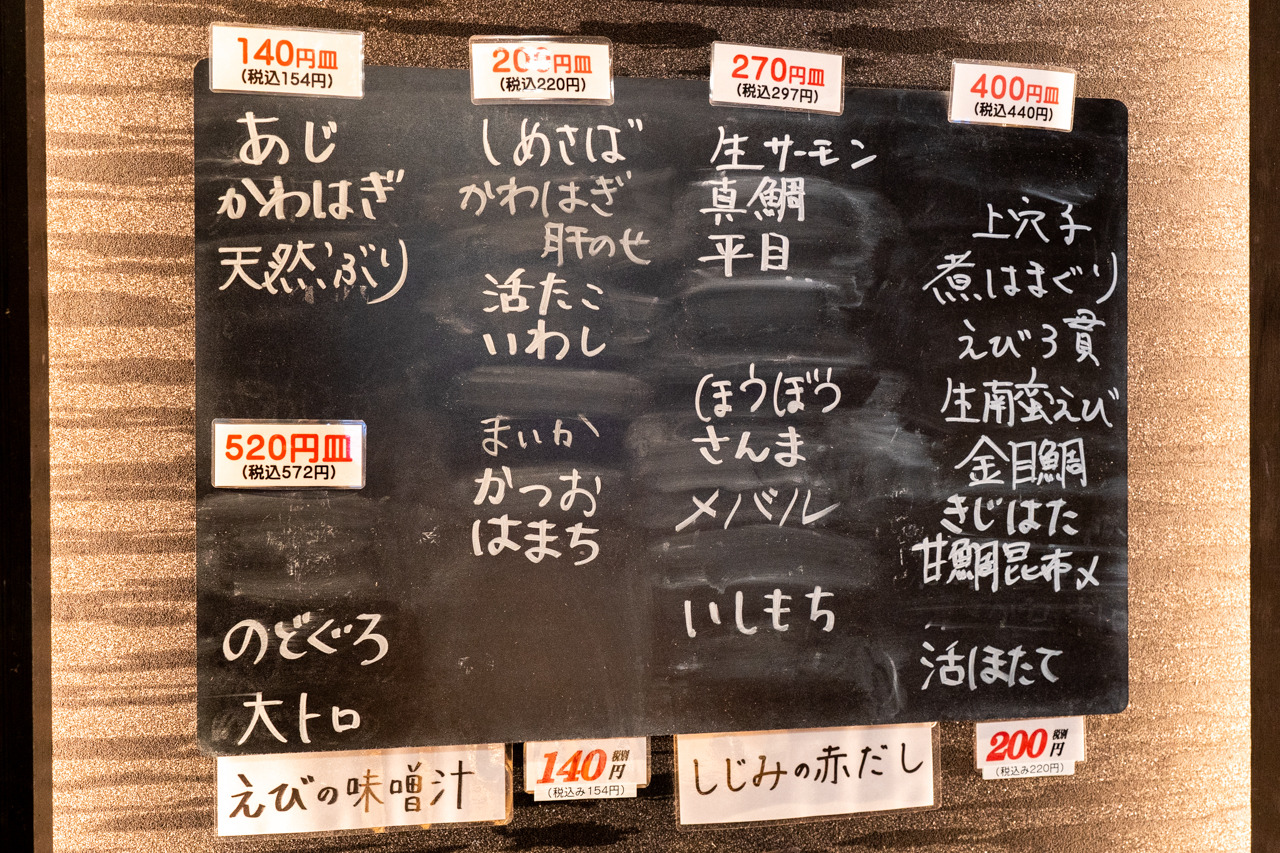 140円皿
(税込154円)
あじ
かわはぎ
天然ぶり
520円皿
(税込572円)
のどぐろ
大トロ
200円皿
(税込220円)
しめさば
かわはぎ
肝のせ
活たこ
いわし
まいか
かつお
はまち
270円皿
(税込297円)
生サーモン
真鯛
平目
ほうぼう
さんま
メバル
いしもち
400円皿
(税込440円)
上穴子
煮はまぐり
えび3貫
生南蛮えび
金目鯛
きじはた
甘鯛昆布〆
活ほたて
えびの味噌汁
140円
税別
(税込み154円)
しじみの赤だし
200円
税別
(税込み220円)